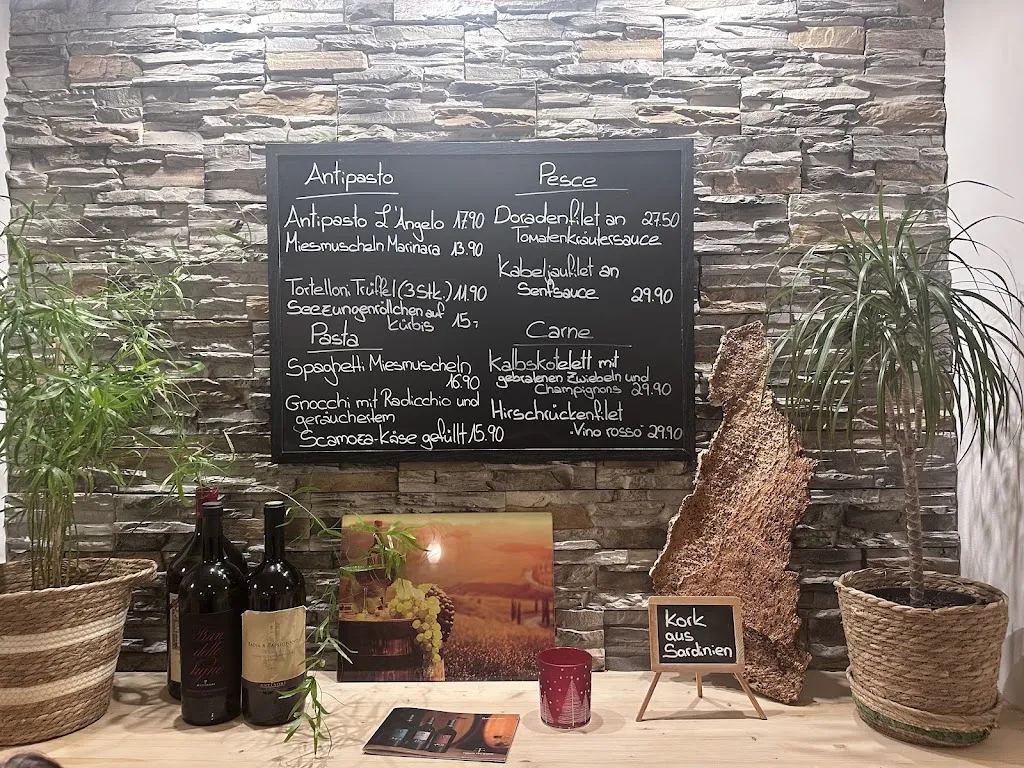 Antipasto
Antipasto L'Angelo 17.90
Miesmuscheln Marinara 13.90
Tortelloni Trüffel (3 Stk.) 11.90
Seezungenröllchen auf
Kürbis 15,-
Pasta
Spaghetti Miesmuscheln
16.90
Gnocchi mit Radicchio und
geräuchertem
Scamoza-Käse gefüllt 15.90
Pesce
Doradenfilet an 27.50
Tomatenkräutersauce
Kabeljaufilet an
Senfsauce 29.90
Carne
Kalbskotelett mit
gebratenen Zwiebeln und
Champignons 29.90
Hirschrückenfilet
"Vino rosso" 29.90
Kork
aus
Sardinien